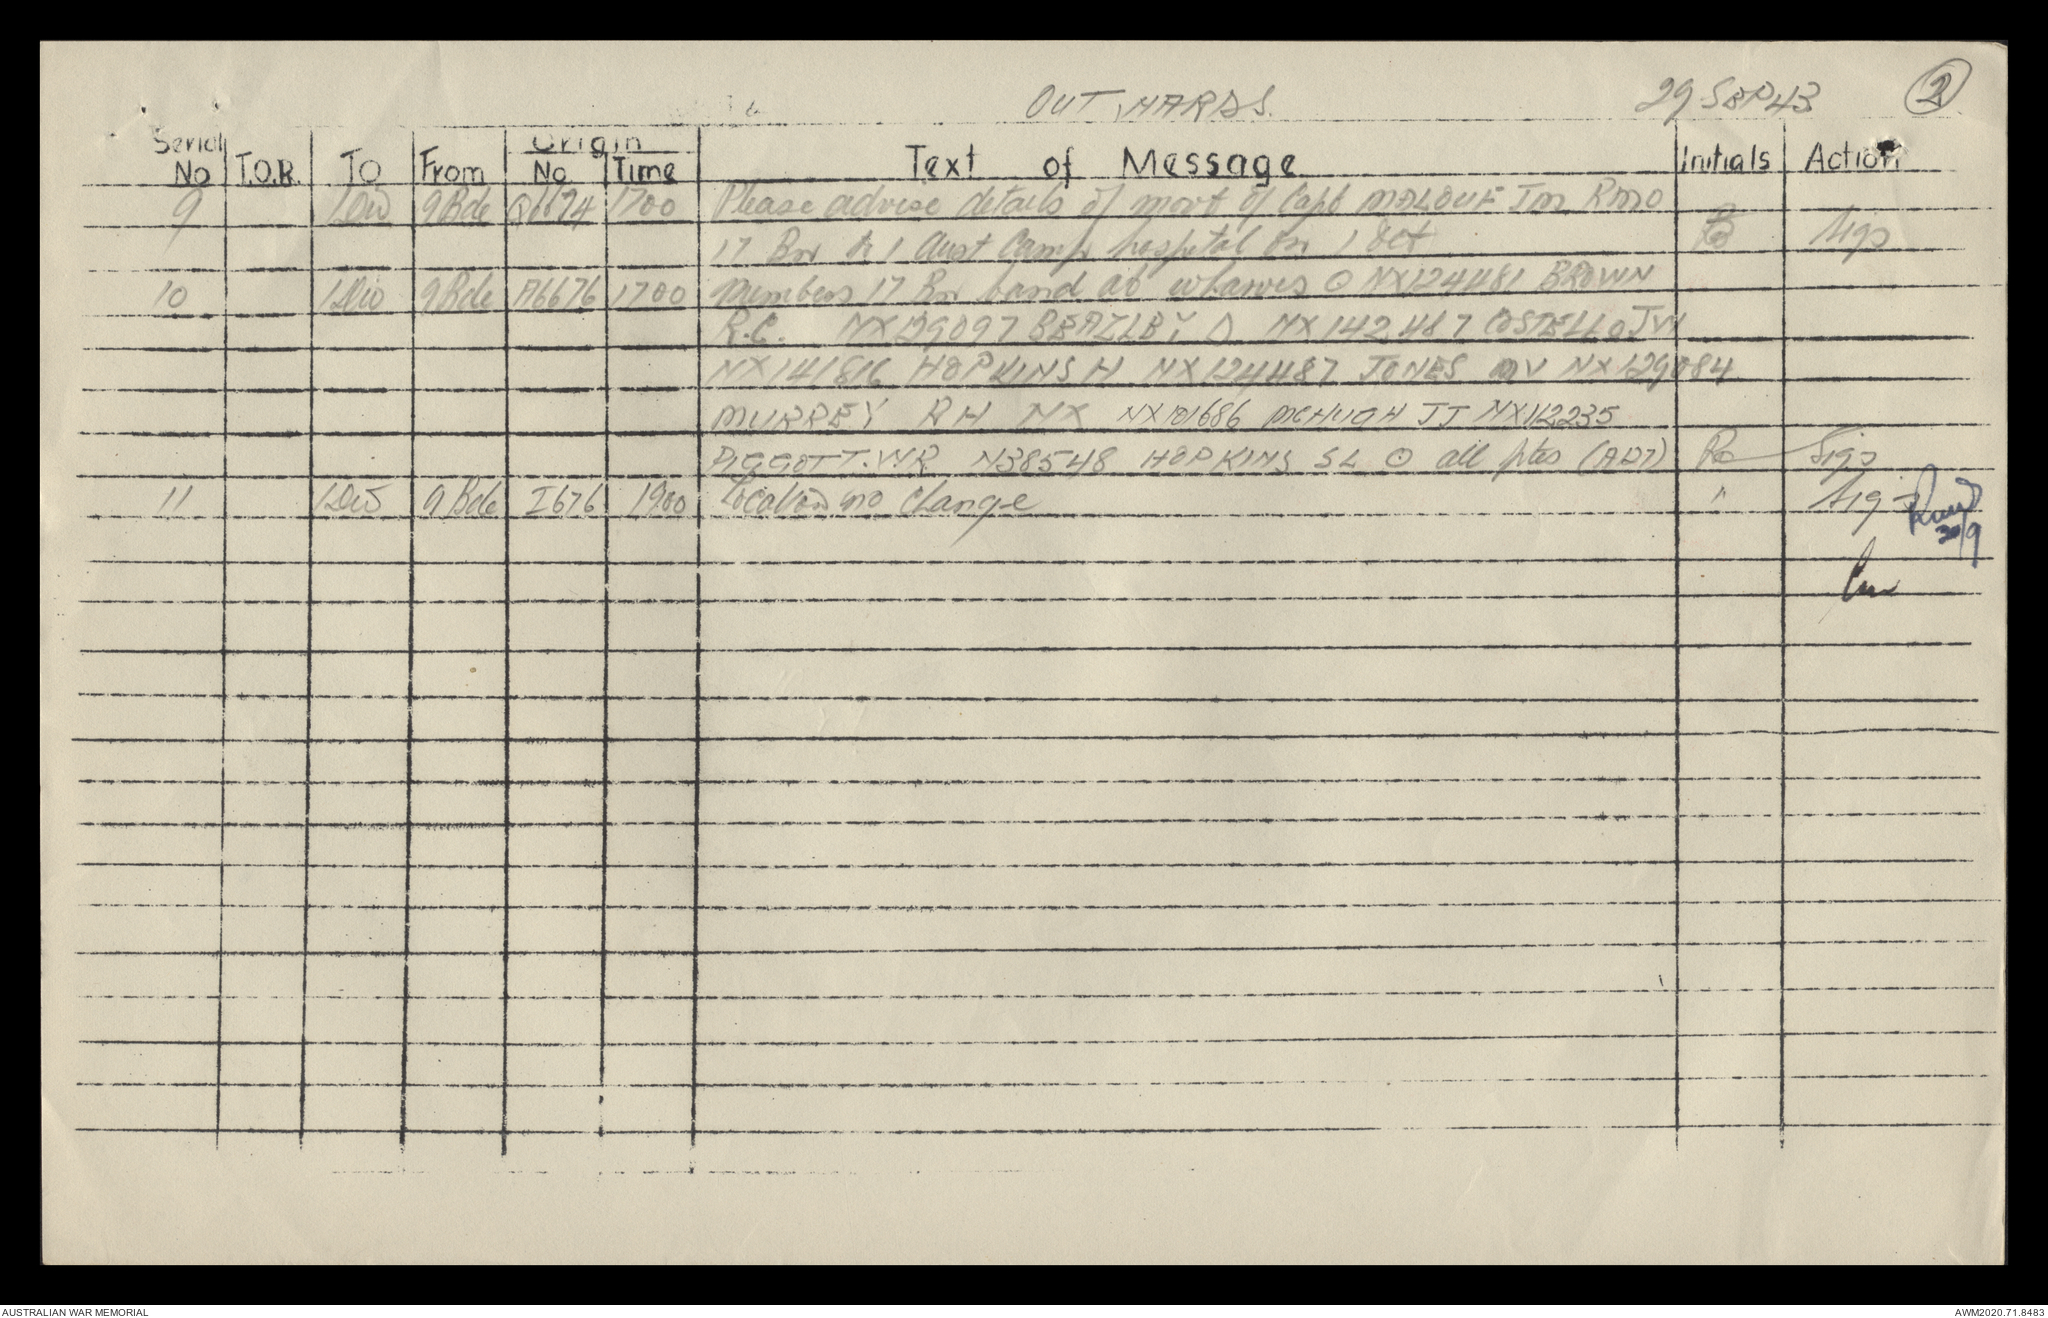 OUTWARDS. 29 SEP 43 2
Serial No T.O.R. TO From Origin No Time Text of Message Initials Action
9 1 Div 9 Bde Q6674 1700 Please advise details of movt of Capt MALOUF JM RMO
17 Bn to 1 Aust Camp hospital on 1 Oct Sigs
10 1 Div 9 Bde A6676 1700 Members 17 Bn band at wharves ⊙ NX124481 BROWN
R.C. NX129097 BEAZLEY D NX142487 COSTELLO JW
NX141816 HOPKINS H NX124487 JONES NX129084
MURREY RH NX NX101686 MCHUGH JJ NX112235
PIGGOTT. WR N38548 HOPKINS SL ⊙ all ptes (AD7) Sigs
11 1 Div 9 Bde I676 1900 Location no change " Sigs
30/9
AUSTRALIAN WAR MEMORIAL AWM2020.71.8483